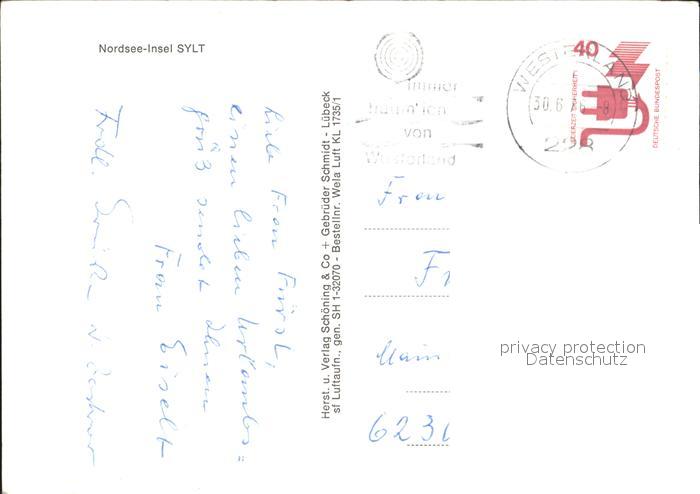 Nordsee-Insel SYLT
Liebe Frau Fürst,
einen lieben Urlaubs=
gruß sendet Ihnen
Frau Eiselt
Frdl.
Herst. u. Verlag Schöning & Co + Gebrüder Schmidt - Lübeck
sf Luftaufn., gen. SH 1-32070 - Bestellnr. Wela Luft KL 1735/1
immer
träum' ich
von
Westerland
WESTERLAND
30.6.76 -8
228
40
JEDERZEIT SICHERHEIT
DEUTSCHE BUNDESPOST
Frau
Main
623
privacy protection
Datenschutz